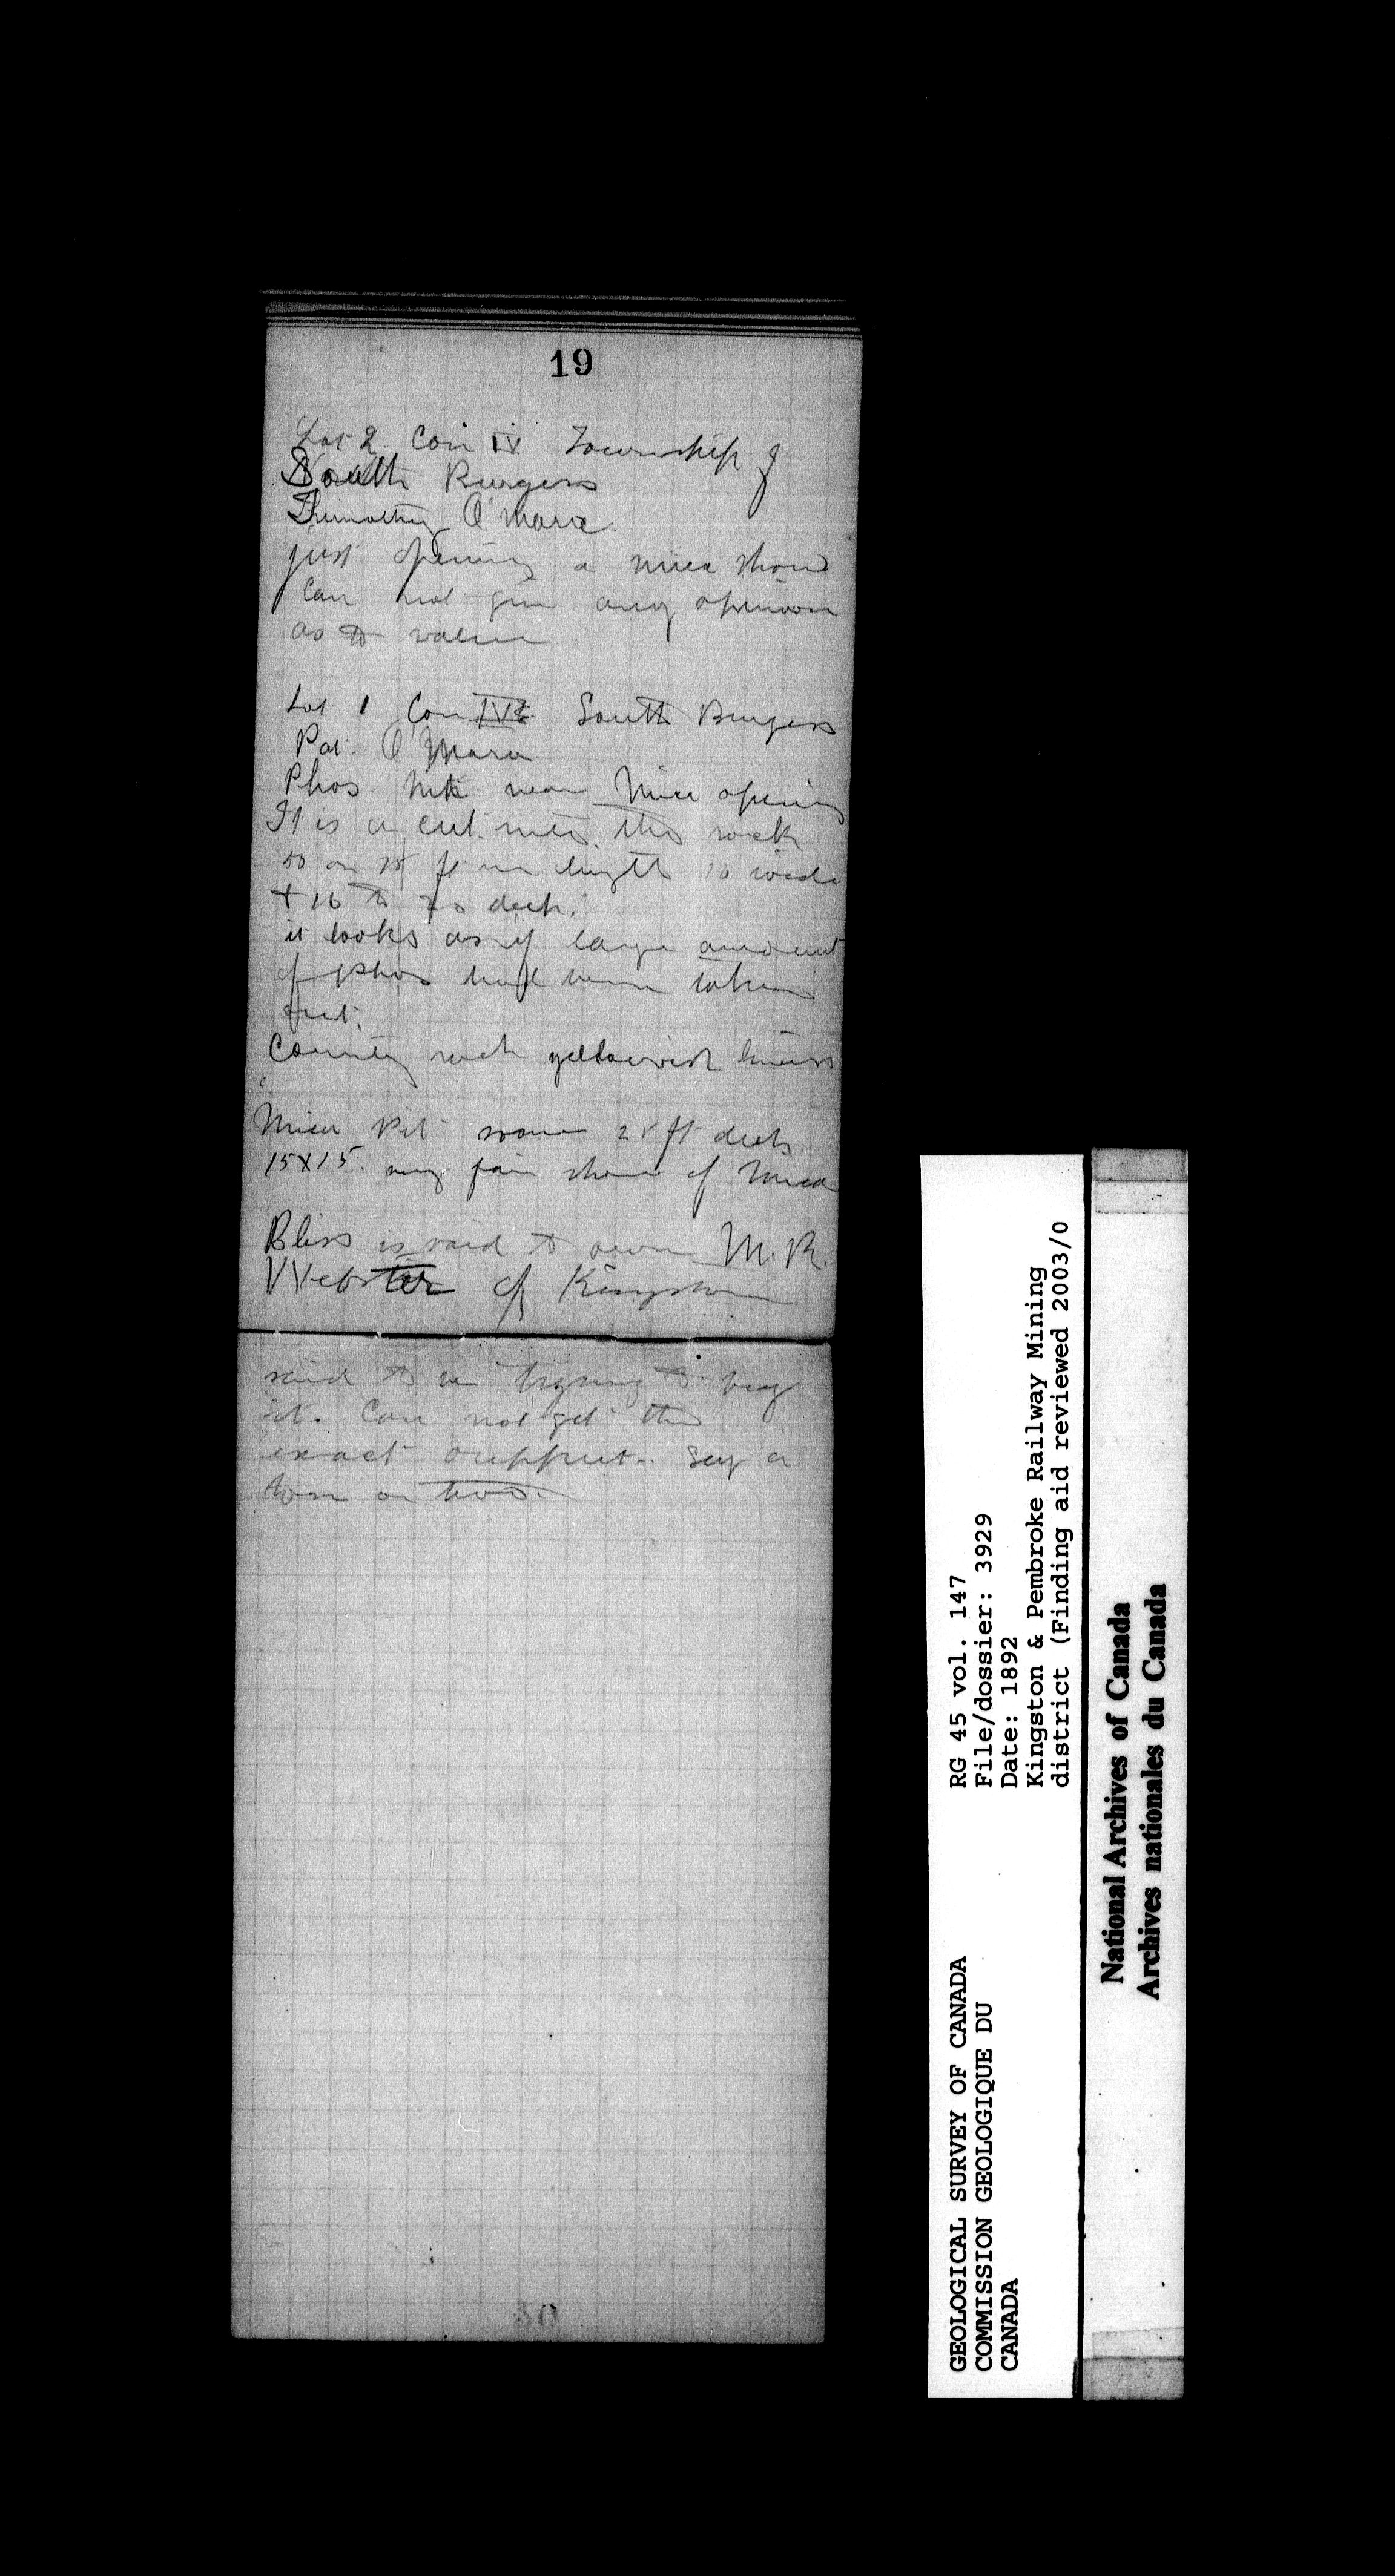 19
Lot 2. Con IV Township of
South Burgess
Timothy O'Mara
just opening a mica show
Can not give any opinion
as to value
Lot 1 Con IV South Burgess
Pat. O'Mara
Phos. near Mica opening
It is a cut into the rock
50 or ft in length 10 wide
+ 16 to 20 deep.
it looks as if large amount
of phos had been taken
out.
Country rock yellowish
Mica Pit some 25 ft deep
15 x 15. very fair show of Mica
Bliss is said to own M. R.
Webster of Kingston
said to be trying to buy
it. Can not get the
exact output. Say a
ton or two.
RG 45 vol. 147
File/dossier: 3929
Date: 1892
Kingston & Pembroke Railway Mining
district (Finding aid reviewed 2003/0
GEOLOGICAL SURVEY OF CANADA
COMMISSION GEOLOGIQUE DU
CANADA
National Archives of Canada
Archives nationales du Canada